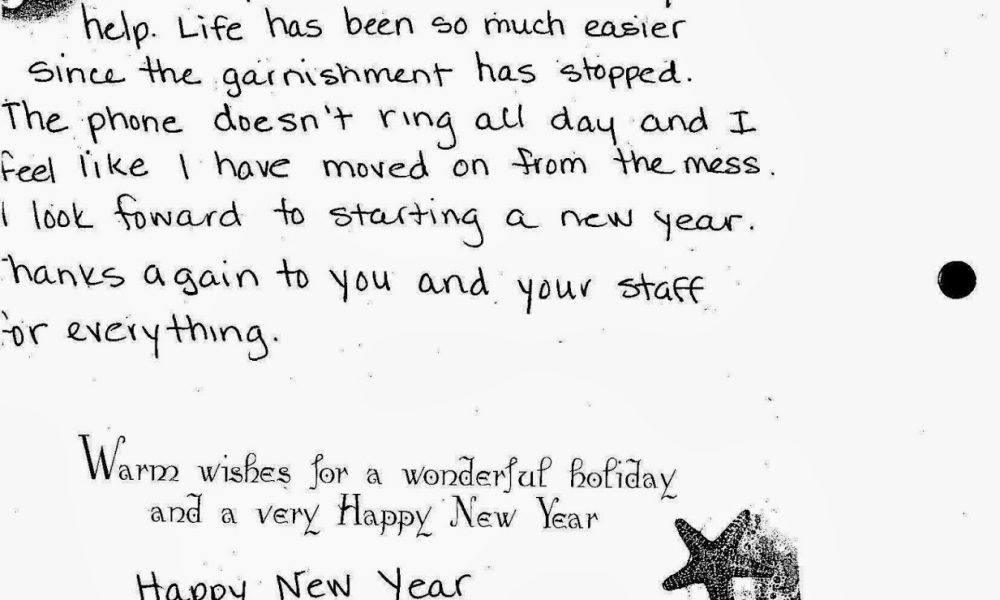 help. Life has been so much easier
since the garnishment has stopped.
The phone doesn't ring all day and I
feel like I have moved on from the mess.
I look foward to starting a new year.
Thanks again to you and your staff
for everything.
Warm wishes for a wonderful holiday
and a very Happy New Year
Happy New Year